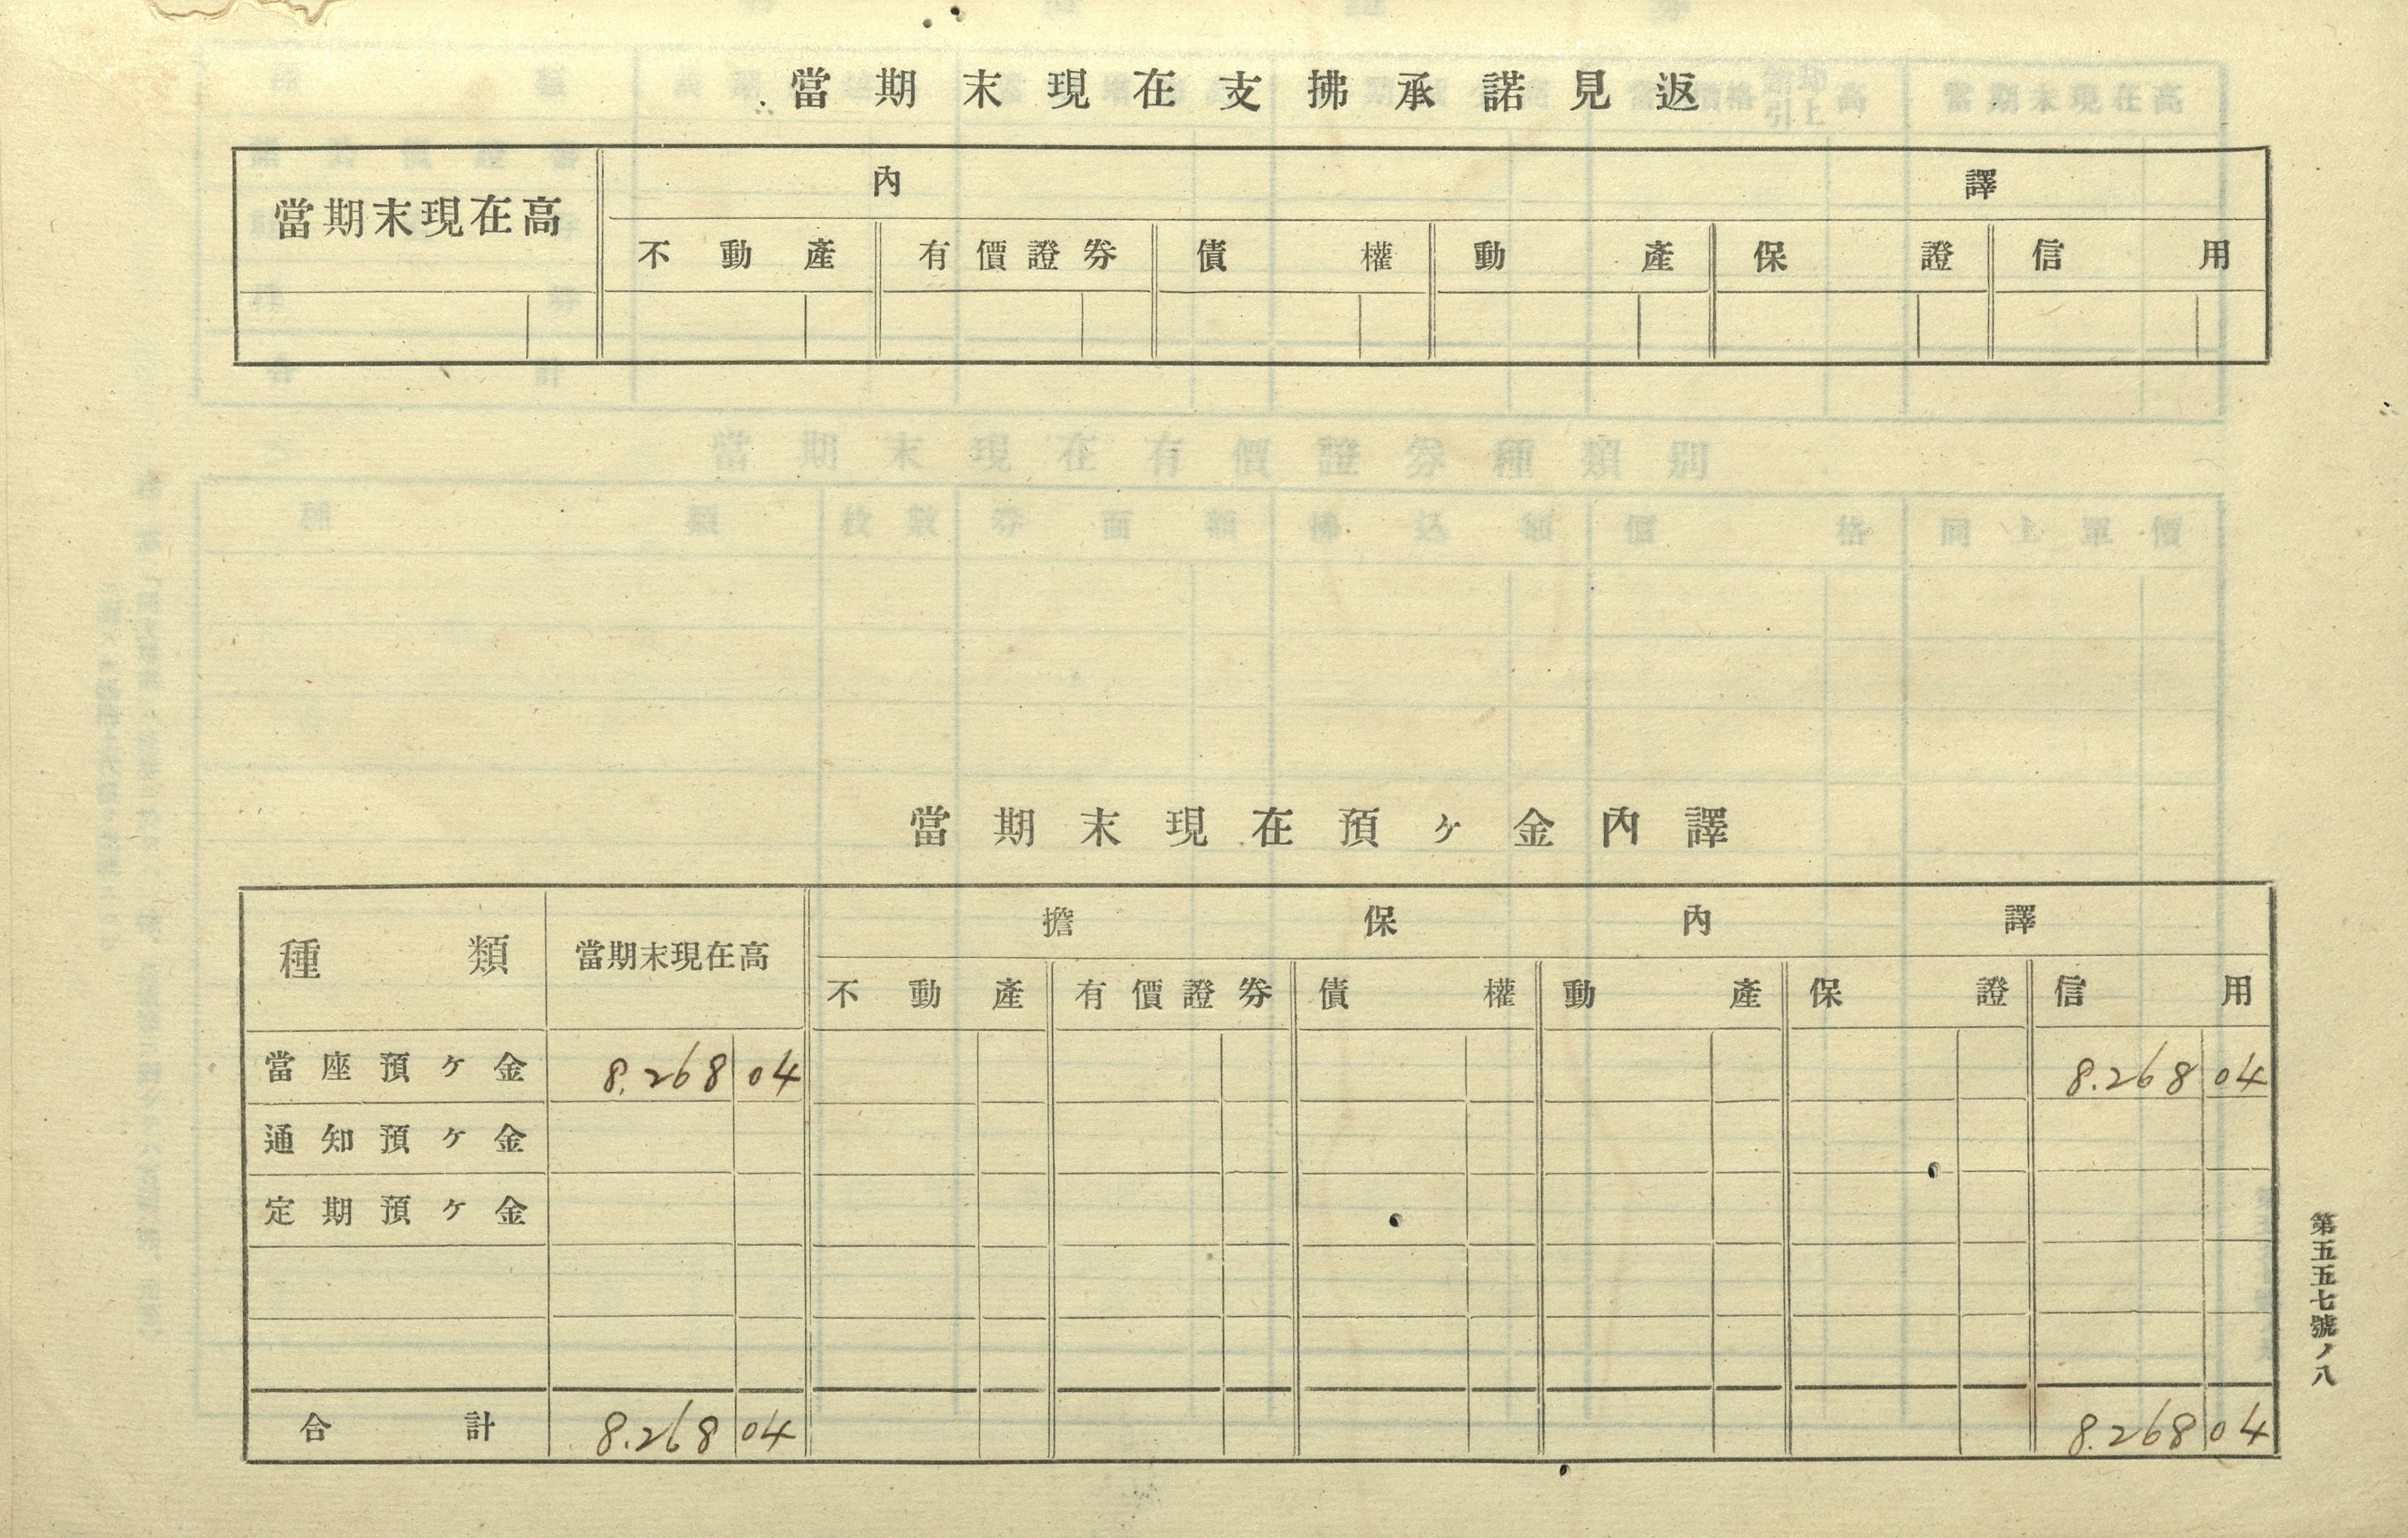 當期末現在支拂承諾見返
當期末現在高 內譯
不動產 有價證券 債權 動產 保證 信用
當期末現在預ヶ金內譯
種類 當期末現在高 擔保內譯
不動產 有價證券 債權 動產 保證 信用
當座預ヶ金 8.268 04 8.268 04
通知預ヶ金
定期預ヶ金
合計 8.268 04 8.268 04
第五五七號ノ八
當期末現在有價證券種類別
種類 枚數 券面額 拂込額 價格 同上單價